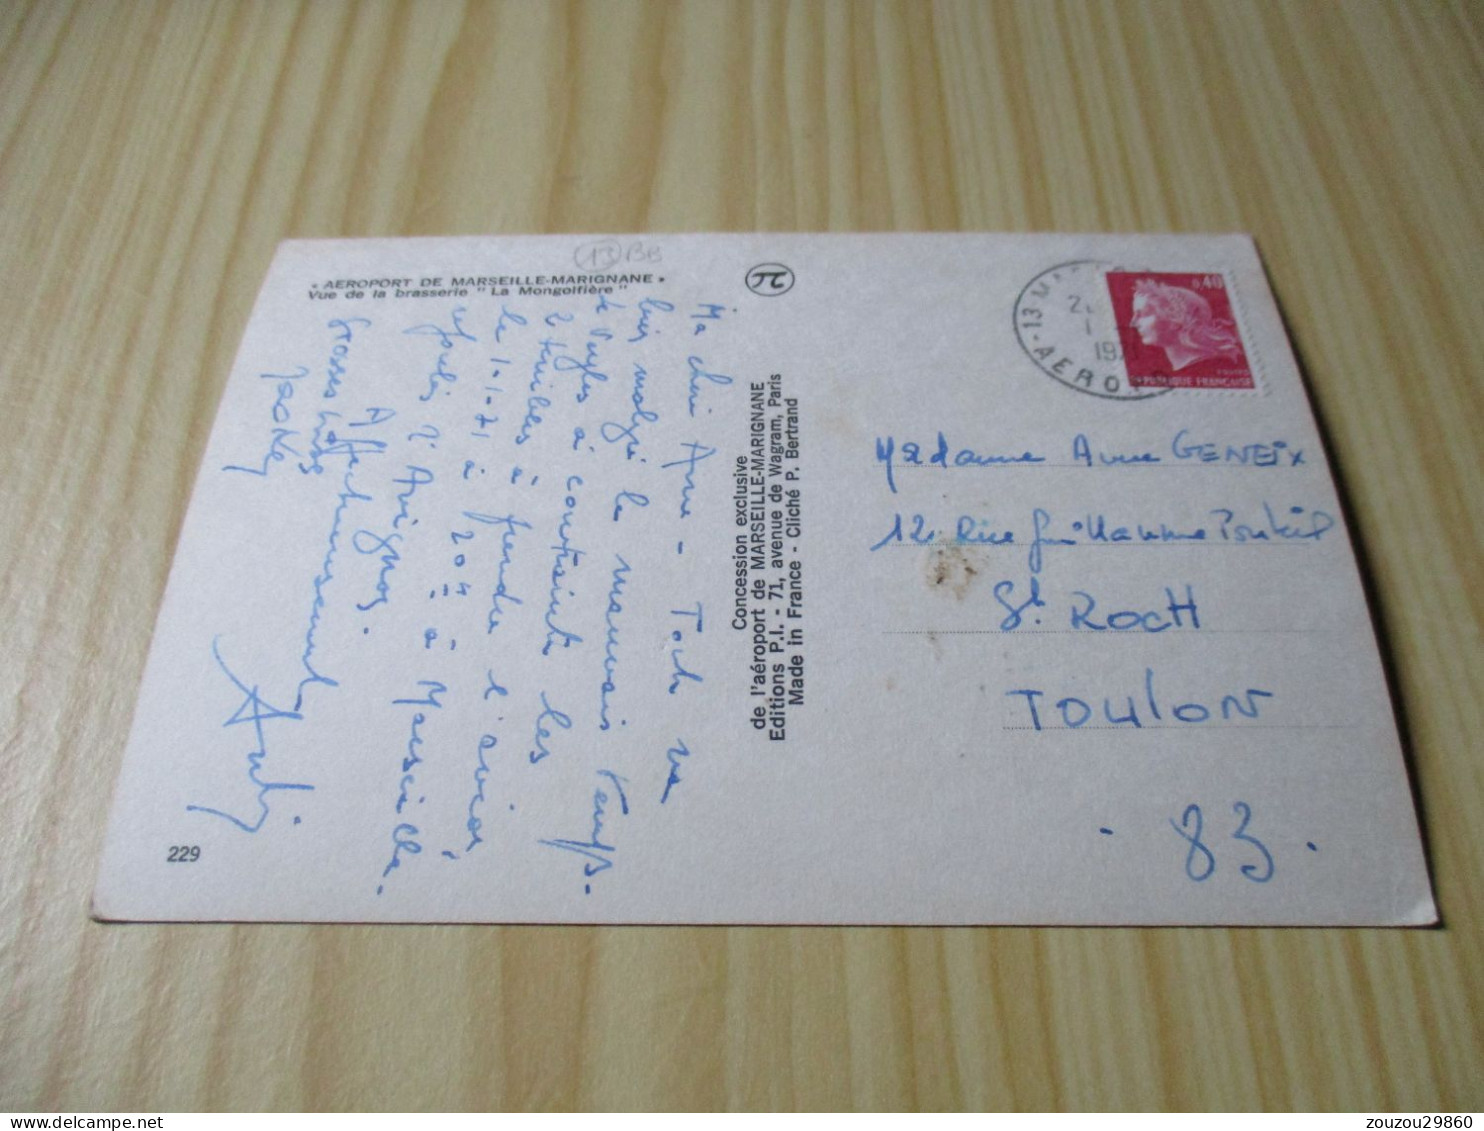 13 BB
« AEROPORT DE MARSEILLE-MARIGNANE »
Vue de la brasserie " La Mongolfière "
Ma chère Anne - Tout va
bien malgré le mauvais temps.
à contrainte les
2 à prendre l'avion
le 1.1.71 à 20H à Marseille
d'Avignon.
Affectueusement
Grosses bises
229
Concession exclusive
de l'aéroport de MARSEILLE-MARIGNANE
Editions P.I. - 71, avenue de Wagram, Paris
Made in France - Cliché P. Bertrand
13 M
2
1
197
AERO
0,40
REPUBLIQUE FRANÇAISE
Madame Anne GENEIX
12 Rue Guillaume
St. ROCH
TOULON
. 83 .
zouzou29860